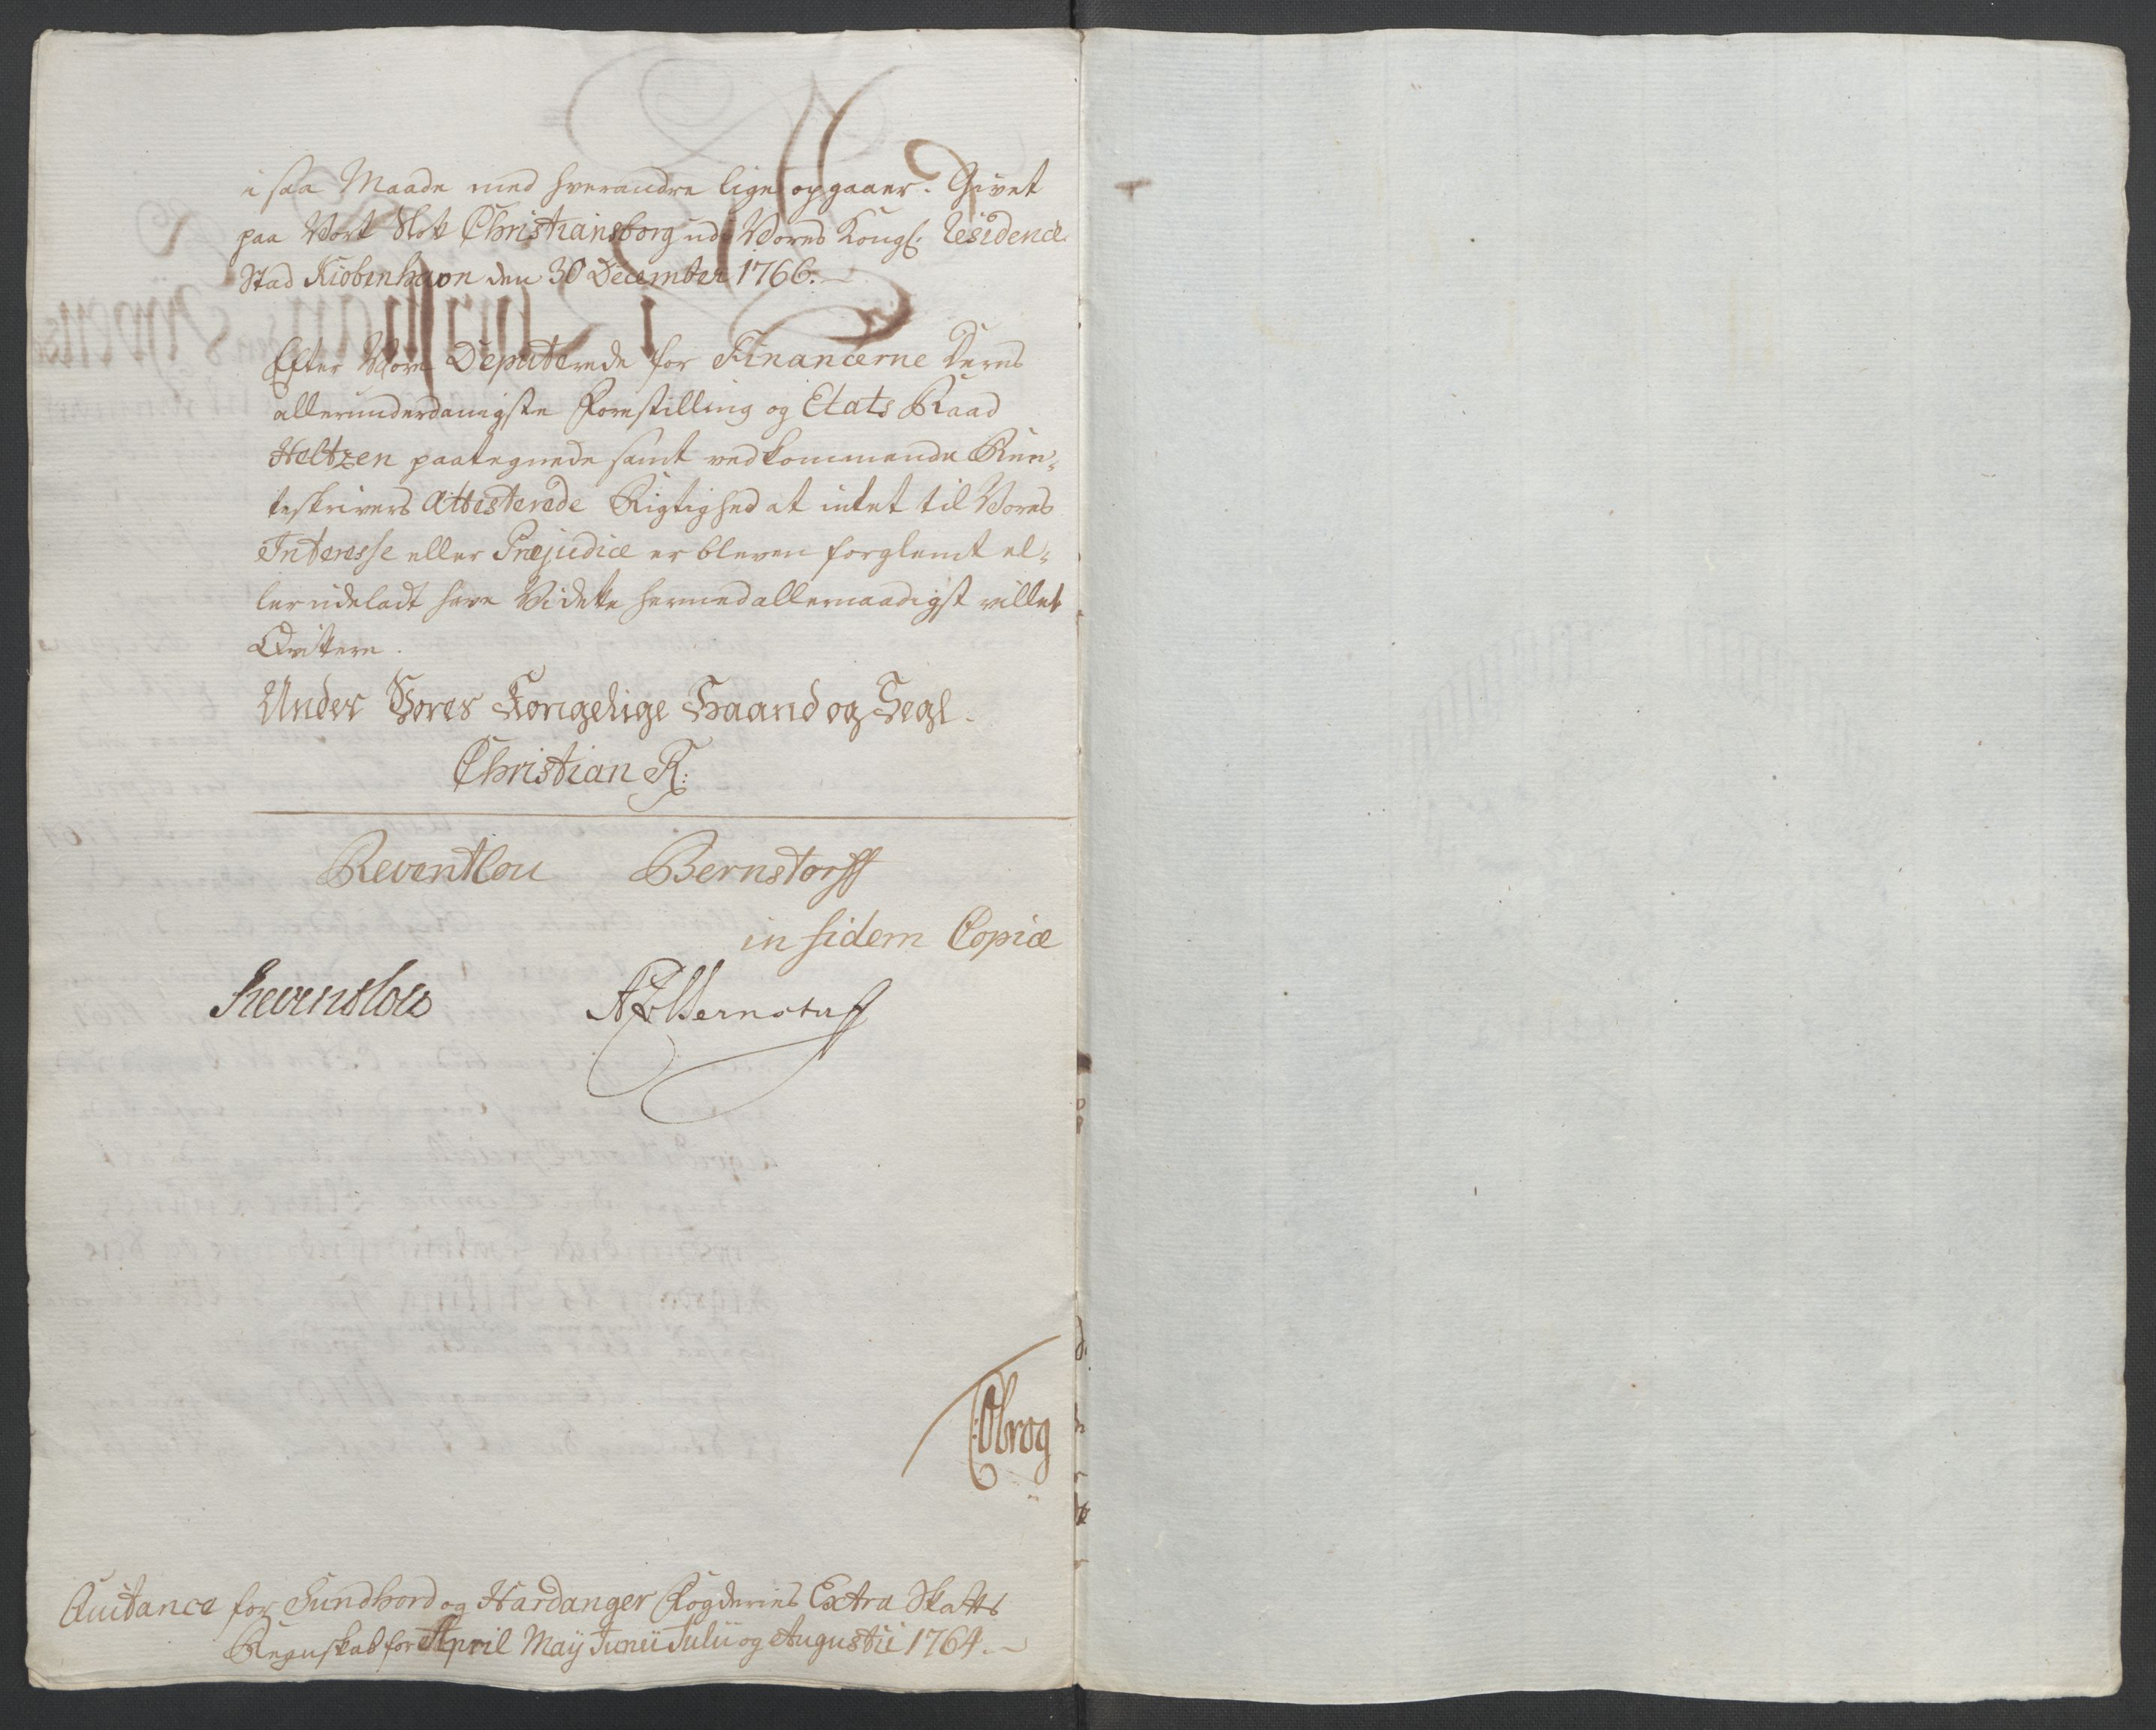 i saa Maade med hverandre lige opgaaer. Givet
paa Vort Slot Christiansborg udi Vores Kongl. Residence
Stad Kiöbenhavn den 30 December 1766.
Efter Vore Deputerede for Financerne deres
allerunderdanigste Forestilling og Etats Raad
Heltzen paategnede samt vedkommende Ren-
teskrivers Attesterede Rigtighed at intet til Vores
Interesse eller Præjudice er bleven forglemt el-
ler udeladt have Vi dette hermed allernaadigst villet
Qvittere.
Under Vores Kongelige Haand og Segl.
Christian R:
Reventlou Bernstorff
in fidem Copiæ
Reventlow AP Bernstorff
Qvitance for Sundhord og Hardanger Fogderies Extra Skatts
Regnskab for April Maÿ Junii Julii og Augustii 1764.